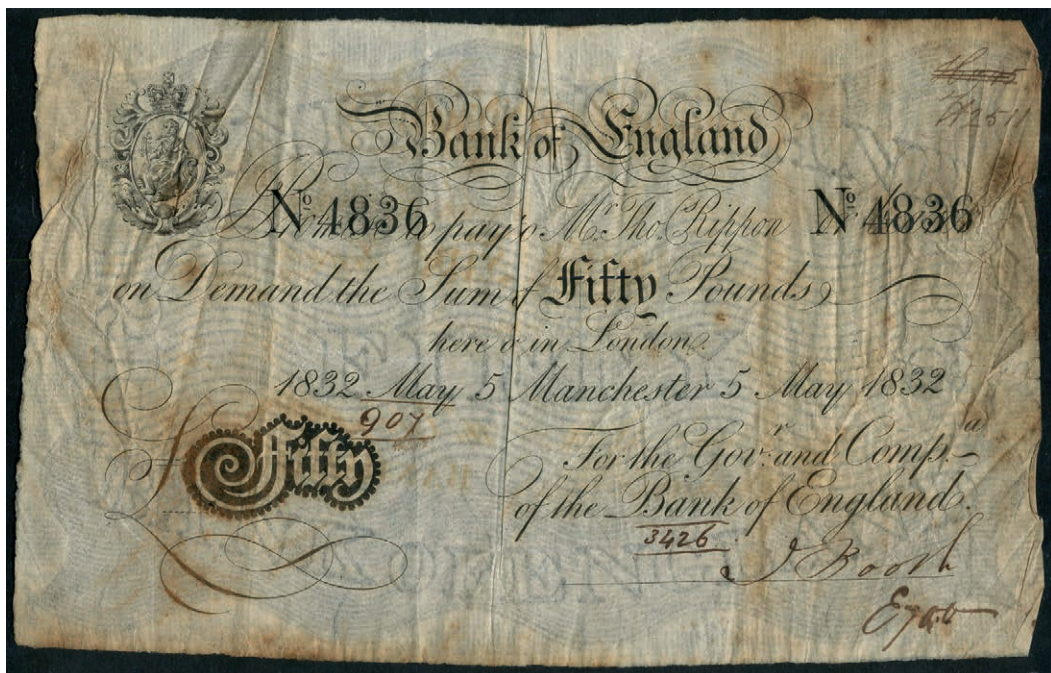 Bank of England
Nº 4836 pay to Mr. Tho. Rippon Nº 4836
on Demand the Sum of Fifty Pounds
here or in London.
1832 May 5 Manchester 5 May 1832
907
Fifty
For the Govr. and Compa.
of the Bank of England.
3426
J Booth